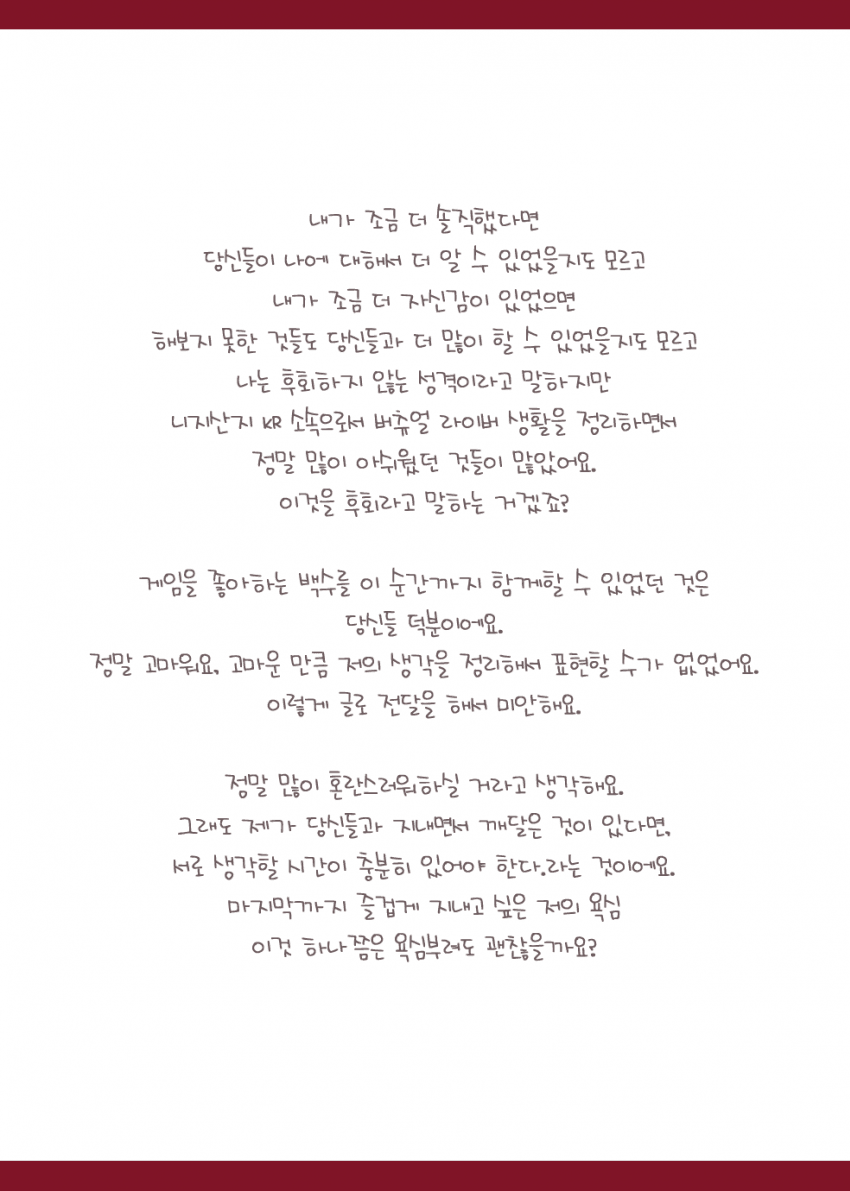 내가 조금 더 솔직했다면
당신들이 나에 대해서 더 알 수 있었을지도 모르고
내가 조금 더 자신감이 있었으면
해보지 못한 것들도 당신들과 더 많이 할 수 있었을지도 모르고
나는 후회하지 않는 성격이라고 말하지만
니지산지 KR 소속으로서 버츄얼 라이버 생활을 정리하면서
정말 많이 아쉬웠던 것들이 많았어요.
이것을 후회라고 말하는 거겠죠?
게임을 좋아하는 백수를 이 순간까지 함께할 수 있었던 것은
당신들 덕분이에요.
정말 고마워요, 고마운 만큼 저의 생각을 정리해서 표현할 수가 없었어요.
이렇게 글로 전달을 해서 미안해요.
정말 많이 혼란스러워하실 거라고 생각해요.
그래도 제가 당신들과 지내면서 깨달은 것이 있다면,
서로 생각할 시간이 충분히 있어야 한다.라는 것이에요.
마지막까지 즐겁게 지내고 싶은 저의 욕심
이것 하나쯤은 욕심부려도 괜찮을까요?